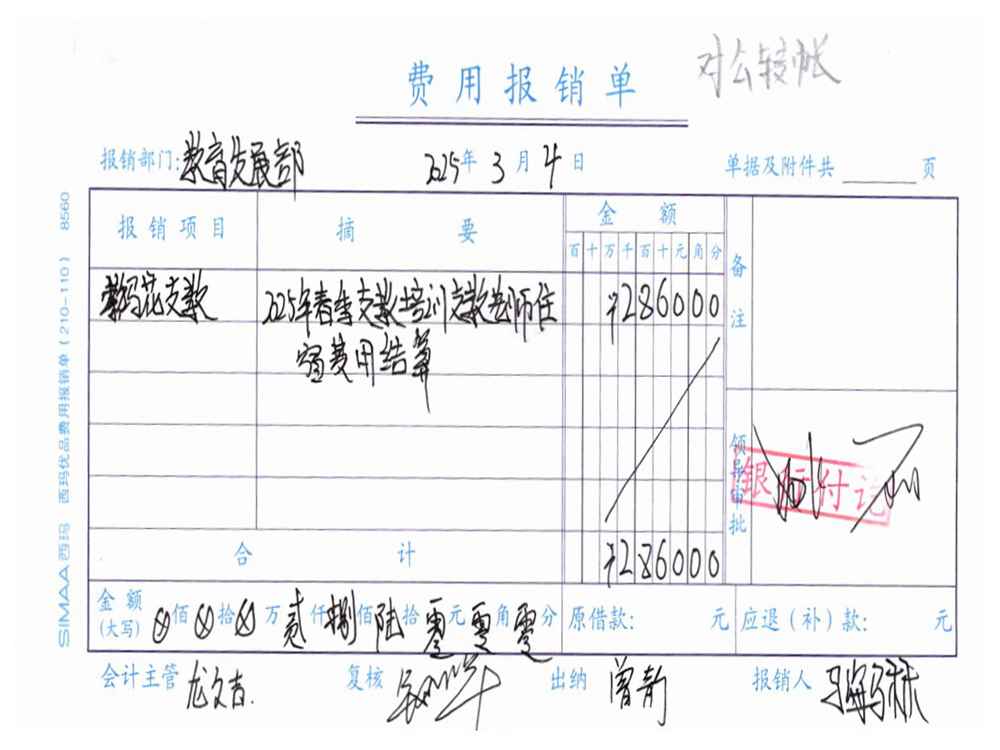 对公转帐
费用报销单
报销部门:教育发展部 2025年3月4日 单据及附件共 页
报销项目 摘要 金额 备注
百十万千百十元角分
支教 2025年春季支教培训支教老师住 ¥286000
宿费用结算
领导审批
银行付讫
合计 ¥286000
金额(大写) ⊗佰⊗拾⊗万贰仟捌佰陆拾零元零角零分 原借款: 元 应退(补)款: 元
会计主管 龙文吉. 复核 出纳 曾静 报销人
SIMAA西玛 西玛优品费用报销单(210-110) 8560